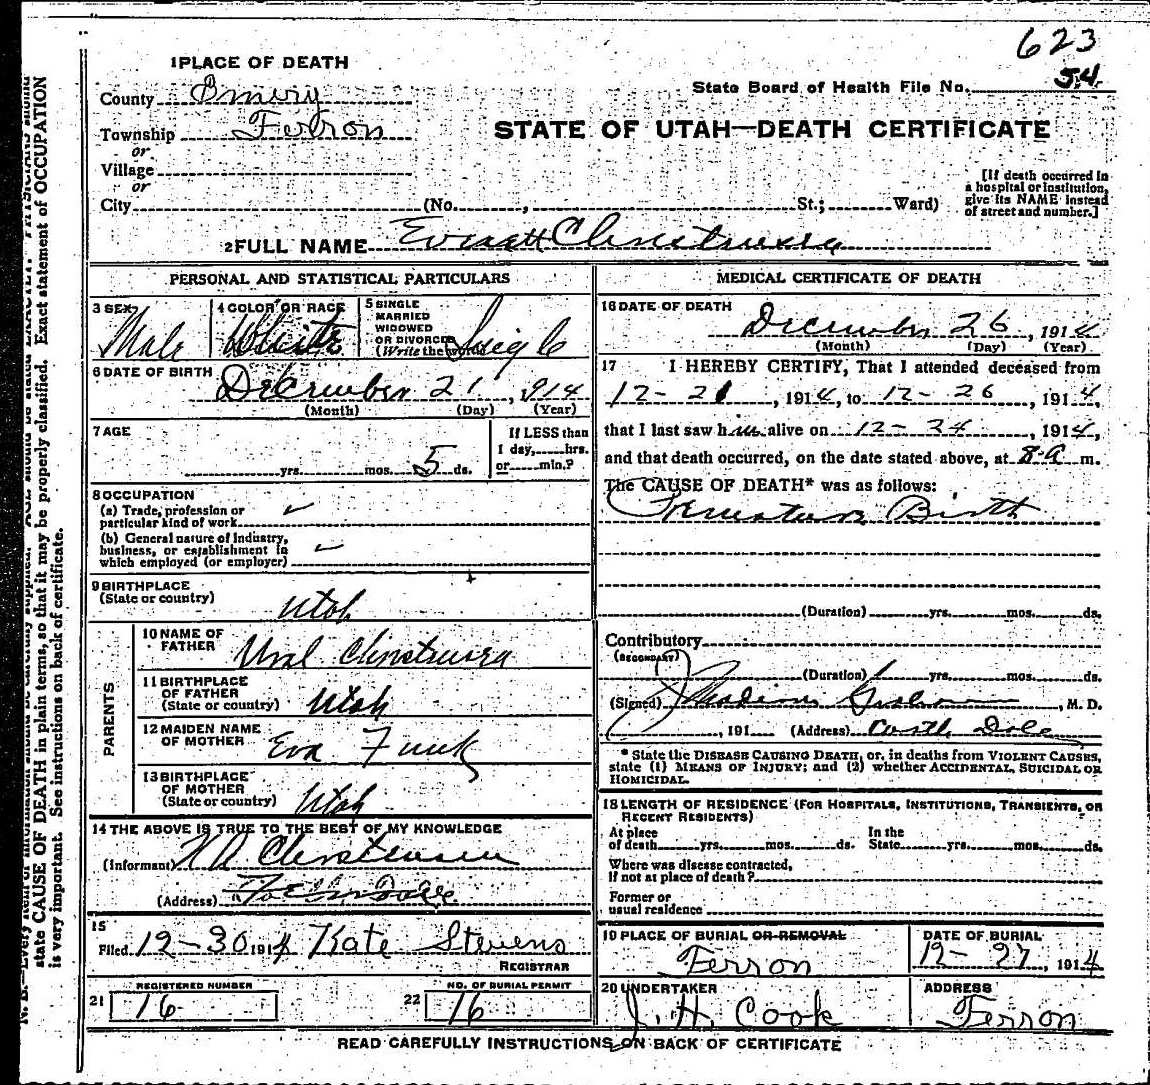 623
54
1 PLACE OF DEATH
State Board of Health File No.
County Emery
Township Ferron
STATE OF UTAH—DEATH CERTIFICATE
or
Village
or
City (No. , St.; Ward)
[If death occurred in
a hospital or institution,
give its NAME instead
of street and number.]
2 FULL NAME Everett Christensen
PERSONAL AND STATISTICAL PARTICULARS
3 SEX Male
4 COLOR OR RACE White
5 SINGLE
MARRIED
WIDOWED
OR DIVORCED
(Write the word) Single
6 DATE OF BIRTH
December 21, 914
(Month) (Day) (Year)
7 AGE
yrs. mos. 5 ds.
If LESS than
1 day, hrs.
or min.?
8 OCCUPATION
(a) Trade, profession or
particular kind of work
(b) General nature of Industry,
business, or establishment in
which employed (or employer)
9 BIRTHPLACE
(State or country)
Utah
PARENTS
10 NAME OF
FATHER
Christensen
11 BIRTHPLACE
OF FATHER
(State or country) Utah
12 MAIDEN NAME
OF MOTHER Eva Funk
13 BIRTHPLACE
OF MOTHER
(State or country) Utah
14 THE ABOVE IS TRUE TO THE BEST OF MY KNOWLEDGE
(Informant) Christensen
(Address)
15
Filed 12-30 1914 Kate Stevens
REGISTRAR
REGISTERED NUMBER
21 16
NO. OF BURIAL PERMIT
22 16
MEDICAL CERTIFICATE OF DEATH
16 DATE OF DEATH
December 26, 1914
(Month) (Day) (Year)
17 I HEREBY CERTIFY, That I attended deceased from
12-21, 1914, to 12-26, 1914,
that I last saw him alive on 12-24, 1914,
and that death occurred, on the date stated above, at 8-a m.
The CAUSE OF DEATH* was as follows:
Premature Birth
(Duration) yrs. mos. ds.
Contributory
(SECONDARY)
(Duration) yrs. mos. ds.
(Signed) , M. D.
, 191 (Address) Castle Dale
* State the DISEASE CAUSING DEATH, or, in deaths from VIOLENT CAUSES,
state (1) MEANS OF INJURY; and (2) whether ACCIDENTAL, SUICIDAL OR
HOMICIDAL.
18 LENGTH OF RESIDENCE (FOR HOSPITALS, INSTITUTIONS, TRANSIENTS, OR
RECENT RESIDENTS)
At place
of death yrs. mos. ds.
In the
State yrs. mos. ds.
Where was disease contracted,
if not at place of death?
Former or
usual residence
19 PLACE OF BURIAL OR REMOVAL
Ferron
DATE OF BURIAL
12-27, 1914
20 UNDERTAKER
J. H. Cook
ADDRESS
Ferron
READ CAREFULLY INSTRUCTIONS ON BACK OF CERTIFICATE
state CAUSE OF DEATH in plain terms, so that it may be properly classified. Exact statement of OCCUPATION
is very important. See instructions on back of certificate.